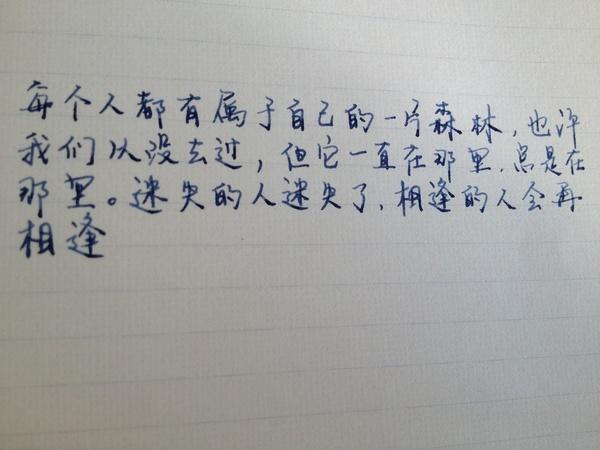 每个人都有属于自己的一片森林，也许
我们从没去过，但它一直在那里，总是在
那里。迷失的人迷失了，相逢的人会再
相逢